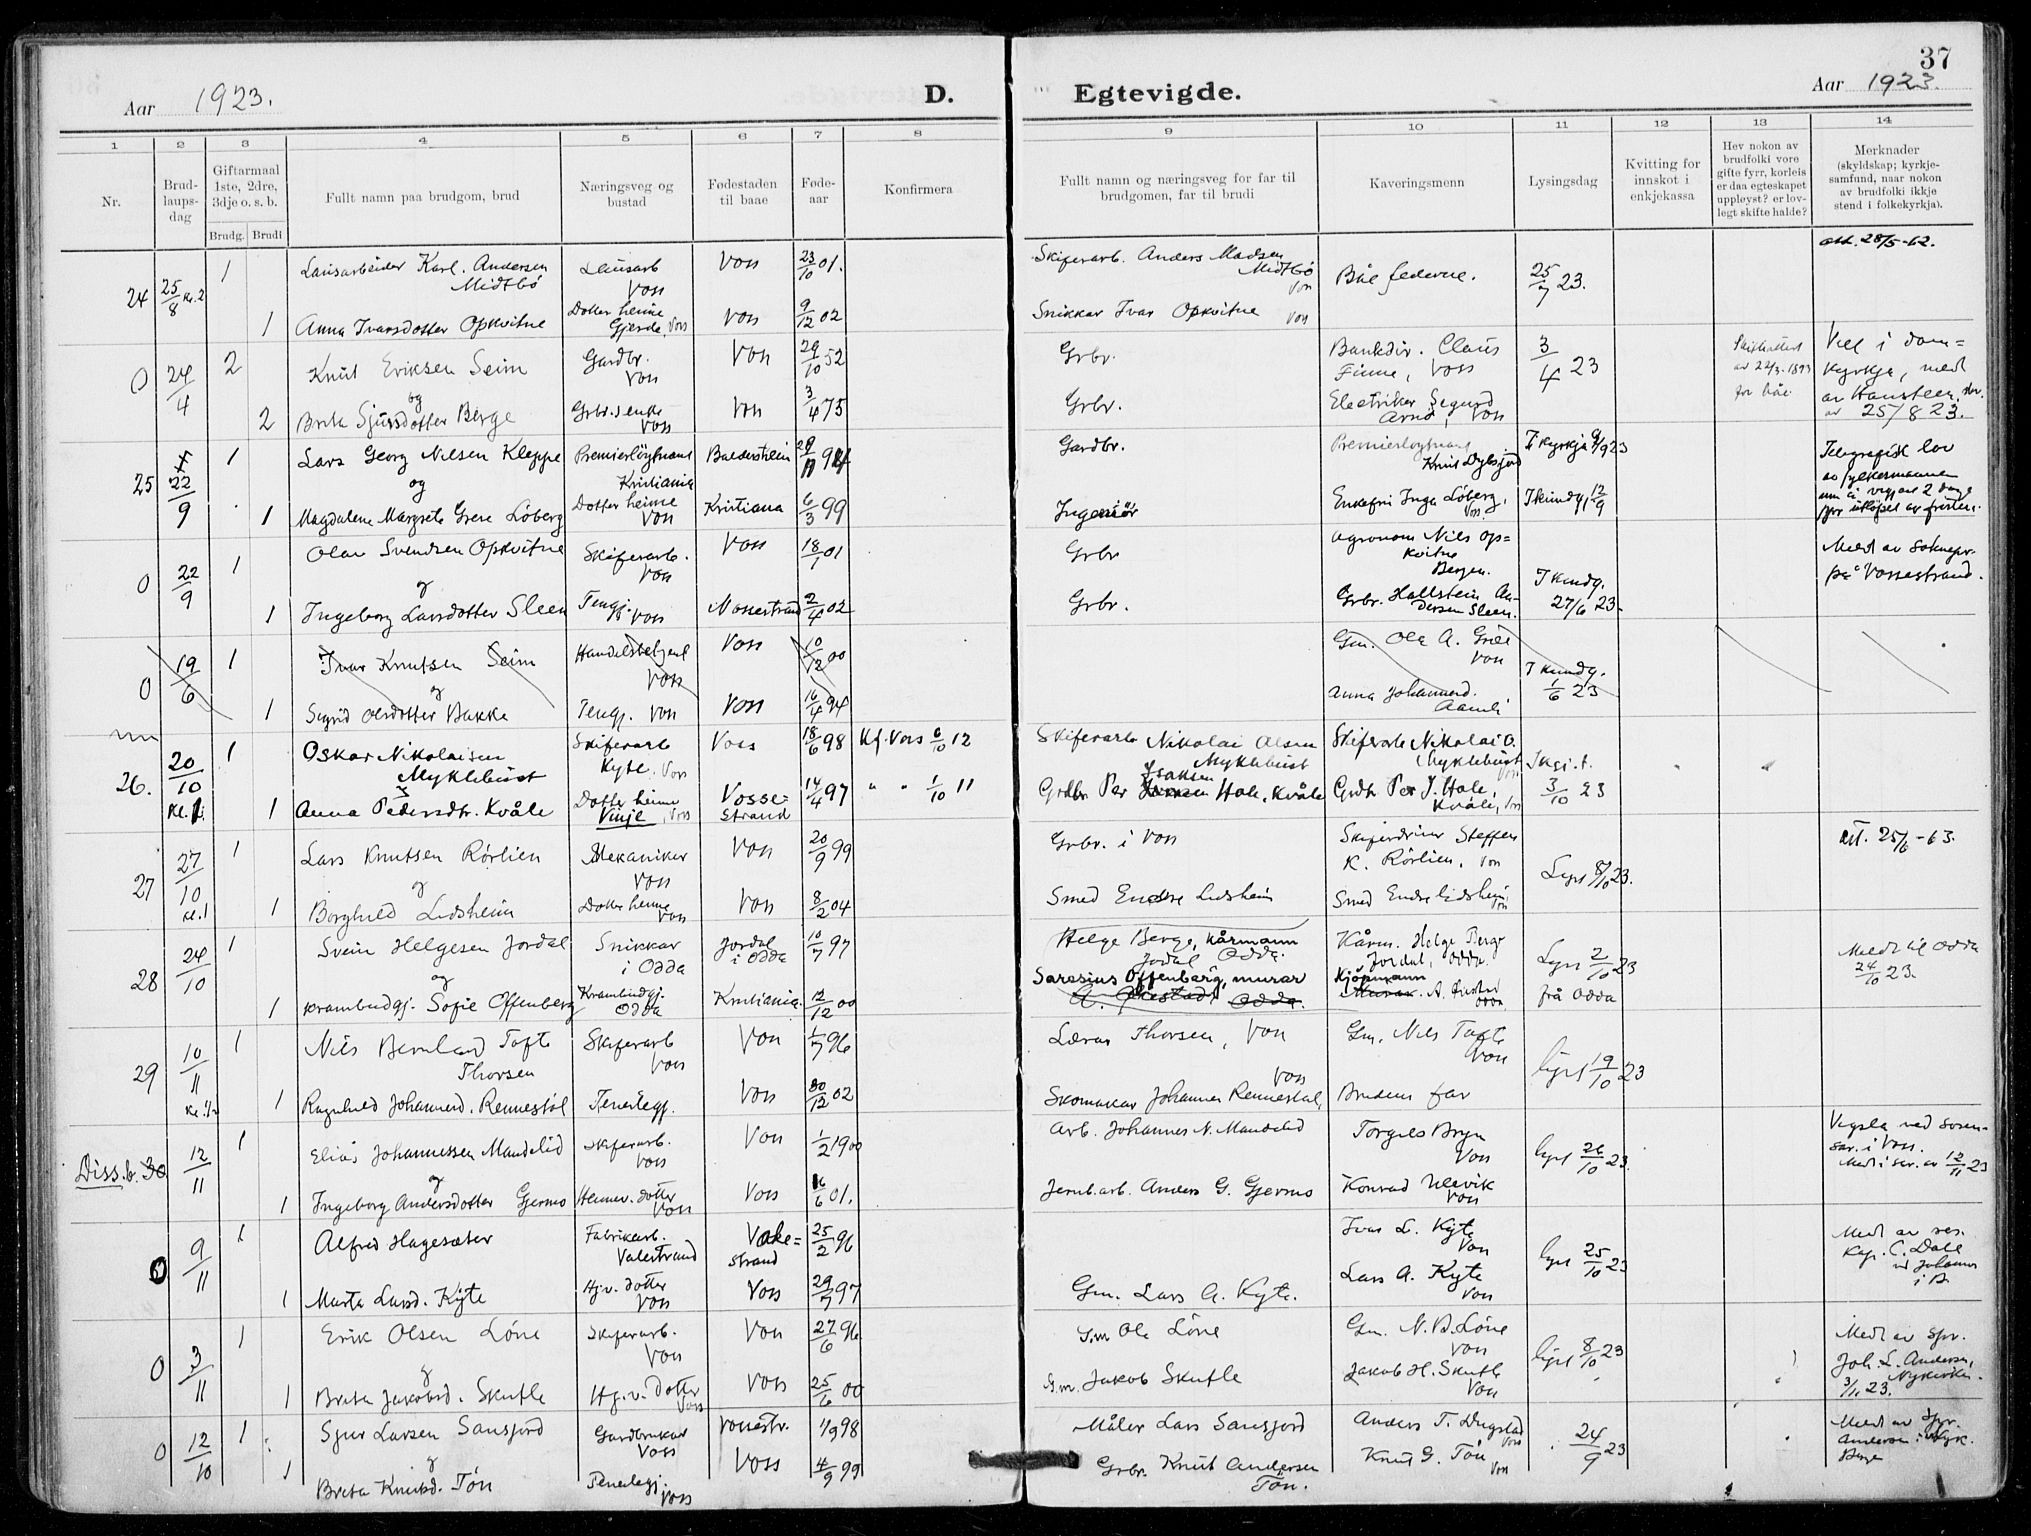 37
Aar 1923.
D.
Egtevigde.
Aar 1923.
1 2 3 4 5 6 7 8 9 10 11 12 13 14
Nr.
Brud-
laups-
dag
Giftarmaal
1ste, 2dre,
3dje o. s. b.
Brudg. Brudi
Fullt namn paa brudgom, brud
Næringsveg og
bustad
Fødestaden
til baae
Føde-
aar
Konfirmera
Fullt namn og næringsveg for far til
brudgomen, far til brudi
Kaveringsmenn
Lysingsdag
Kvitting for
innskot i
enkjekassa
Hev nokon av
brudfolki vore
gifte fyrr, korleis
er daa egteskapet
uppløyst? er lov-
legt skifte halde?
Merknader
(skyldskap; kyrkje-
samfund, naar nokon
av brudfolki ikkje
stend i folkekyrkja).
24 25/8 Kl. 2 1 Lausarbeider Karl Andersen Midtbö Lausarb Voss Voss 23/10 01. Skiferarb. Anders Madsen Midtbö Voss Båe federne. 25/7 23. att. 28/5-62.
1 Anna Ivarsdotter Opkvitne Dotter heime Gjerde, Voss Voss 9/12 02 Snikkar Ivar Opkvitne Voss
0 24/4 2 Knut Eriksen Seim Gardbr. Voss Voss 29/10 52 Grbr. Bankdir. Claus Finne, Voss 3/4 23 Vid i dom=
kyrkja, med
av Hansteen
25/8 23.
og
2 Brita Sjursdotter Berge Grbr.s enke Voss Voss 3/4 75 Grbr. Electriker Segurd Arnö, Voss
25 22/9 1 Lars Georg Nilsen Kleppe Premierlöytnant Kristiania Balestrheim Gardbr. Premierloytnant Knut Dybsjord I kyrkja 9/9 23 Telegrafisk lov
av fylkesmannen
og
1 Magdalene Margrete Grere Löberg Dotter heime Voss Kristiana 6/3 99 Ingeniør Enkefru Inga Löberg, Voss. I kundg. 12/9
0 22/9 1 Olav Svendsen Opkvitne Skiferarb. Voss Voss 18/7 01 Grbr Agronom Nils Op=
kvitne
Bergen. Meld av soknepr.
på Vossestrand.
og
1 Ingeborg Larsdotter Sleen Tengj. Voss Vossestrand 2/4 02 Grbr. Grbr. Hallstein An-
dersen Sleen. I kundg. 27/6 23.
0 19/6 1 Ivar Knutsen Seim Handelsbetjent Voss Voss 10/12 00 Gm. Ole A. Gröe Voss I kundg. 1/6 23
og
1 Sigrid Olsdotter Bakke Tengj. Voss Voss 16/4 94 Anna Johannesd. Aamli
26. 20/10 Kl. 1. 1 Oskar Nikolaisen Myklebust Skiferarb Kyte. Voss Voss 18/6 98 Kf. Voss 6/10 12 Skiferarb Nikolai Olsen Myklebust Skiferarb Nikolai O. Myklebust Voss 3/10 23
1 Anna Pedersdtr. Kvåle Dotter heime Vinje, Voss Vosse-
strand 14/4 97 " " 1/10 11 Grdbr Per Isaksen Hole, Kvåle Grdbr Per I. Hole, Kvåle, Voss
27 27/10 Kl. 1 1 Lars Knutsen Rörlien Mekaniker Voss Voss 20/9 99 Grbr. i Voss Skiferdriver Steffen K. Rörlien, Voss Lyst 8/10 23. att. 25/6-63.
og
1 Borghild Lidsheim Dotter heime Voss Voss 8/2 04 Smed Endre Lidsheim Smed Endre Lidsheim, Voss
28 24/10 1 Svein Helgesen Jordal Snikkar i Odda Jordal i Odda 10/7 97 Helge Berge, kårmann Jordal Odda. Kårm. Helge Berge Jordal, Odda. Lyst 2/10 23 frå Odda Meldt til Odda
24/10 23.
og
1 Krambudgj. Sofie Offenberg Krambudgj. Odda Kristiania. 12/12 00 Sarasius Offenberg, murar Odda. Kjöpmann A. Odda
29 10/11 1 Nils Bernhard Tofte Thorsen Skiferarb Voss Voss 1/7 96 Lærar Thorsen, Voss Gm. Nils Tofte Voss lyst 19/10 23
1 Ragnhild Johannesd. Rennestöl Tenestegj. Voss 30/12 02 Skomakar Johannes Rennestöl, Voss Brudens far
Diss.b. 30 12/11 1 Elias Johannessen Mandelid Skiferarb. Voss Voss 1/2 1900 Arb. Johannes N. Mandelid Torgils Bryn Voss lyst 26/10 23 Vigsla ved soren-
skr. i Voss.
Med i skr. av 12/11 23
og
1 Ingeborg Andersdotter Gjerno Heimev. dotter Voss Voss 6 01. Jernb.arb. Anders G. Gjerno Konrad Ullevik Voss
0 9/11 1 Alfred Hagesæter Fabrikarb. Valestrand Vale=
strand 25/2 96 Ivar L. Kyte Voss lyst 25/10 23 Med av res.
Kap. C. Dale
v/ Johannes
i B
1 Marta Larsd. Kyte Hj.v. dotter Voss Voss 29/7 97 Gm. Lars A. Kyte. Lars A. Kyte Voss
0 3/11 1 Erik Olsen Löne Skiferarb. Voss Voss 27/6 96 G.m Ole Löne Gm. N. B. Löne Voss lyst 8/10 23 Med av Spr.
Joh. L. Andersen,
Nykirken.
3/11 23.
og
1 Brita Jakobsd. Skutle Hj.v. Dotter Voss Voss 25/6 00 G.m. Jakob Skutle Jakob H. Skutle Voss
0 12/10 1 Sjur Larsen Sausjord Gardbrukar Voss Vossestr. 1/9 98 Måler Lars Sausjord Anders T. Dugstad Voss 24/9 23 Meld av Spr.
Andersen i Nyk.
Bergen
og
1 Brita Knutsd. Tön Tenestegj. Voss Voss 4/9 99 Grbr. Knut Andersen Tön. Knut G. Tön Voss